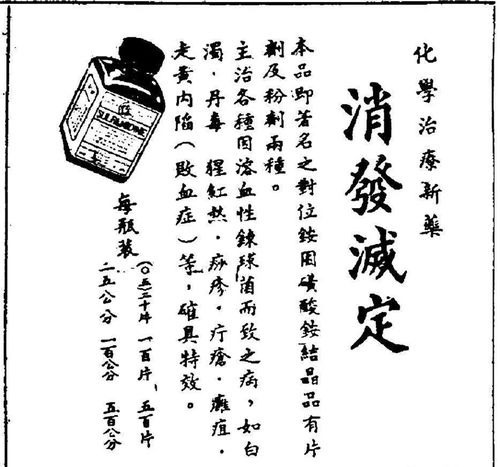 化學治療新藥
消發滅定
本品即著名之對位銨困磺酸銨結晶品有片
劑及粉劑兩種。
主治各種因溶血性鍊球菌而致之病，如白
濁．丹毒．猩紅熱．痧疹．疔瘡．癰疽．
走黃內陷（敗血症）等，確具特效。
每瓶裝
（〇·五）二十片 一百片、五百片
二五公分 一百公分 五百公分